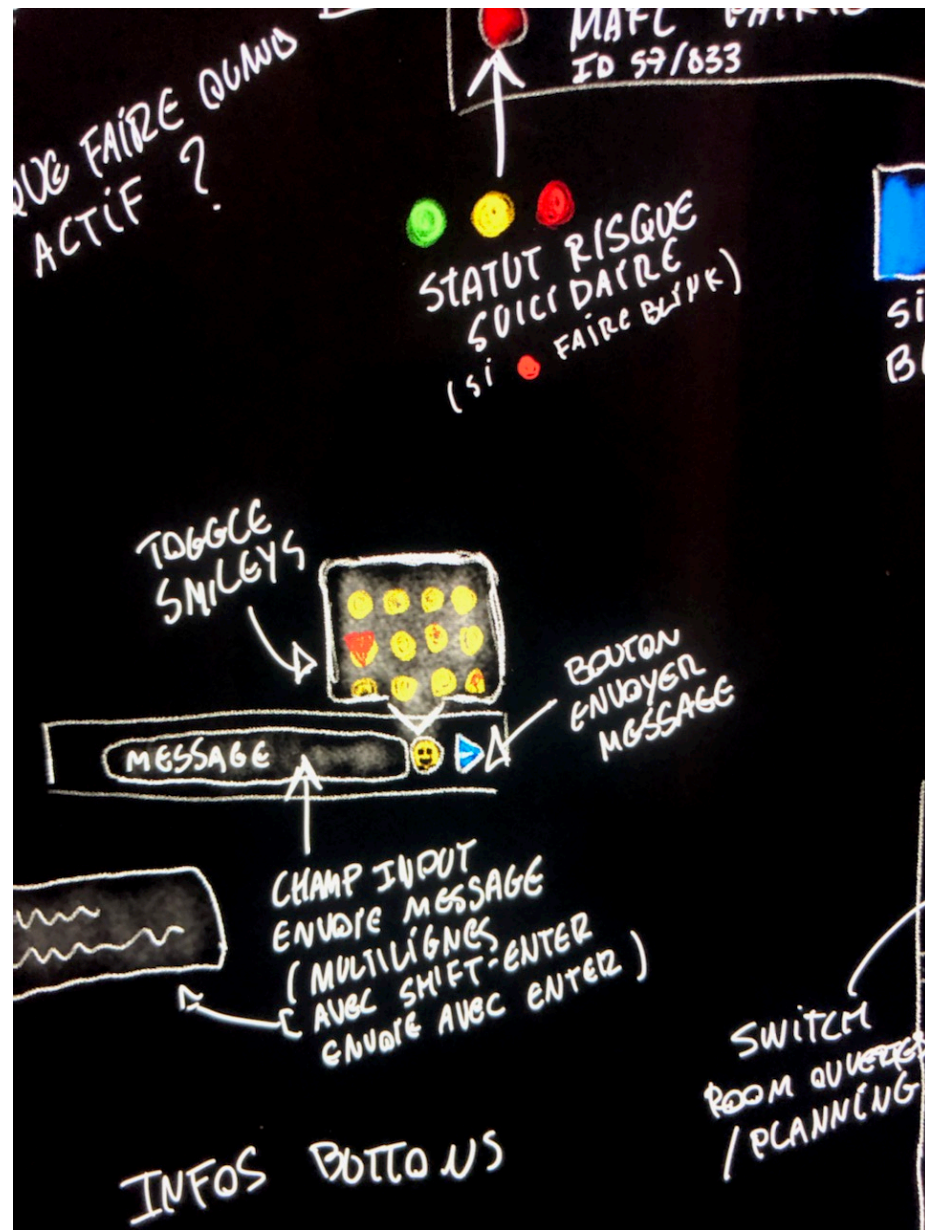 ID 57/833
QUE FAIRE QUAND
ACTIF ?
STATUT RISQUE
SUICIDAIRE
(SI FAIRE BLINK)
SI
TOGGLE
SMILEYS
BOUTON
ENVOYER
MESSAGE
MESSAGE
CHAMP INPUT
ENVOIE MESSAGE
(MULTILIGNES
AVEC SHIFT-ENTER
ENVOIE AVEC ENTER)
SWITCH
ROOM OUVERTES
/PLANNING
INFOS BUTTONS